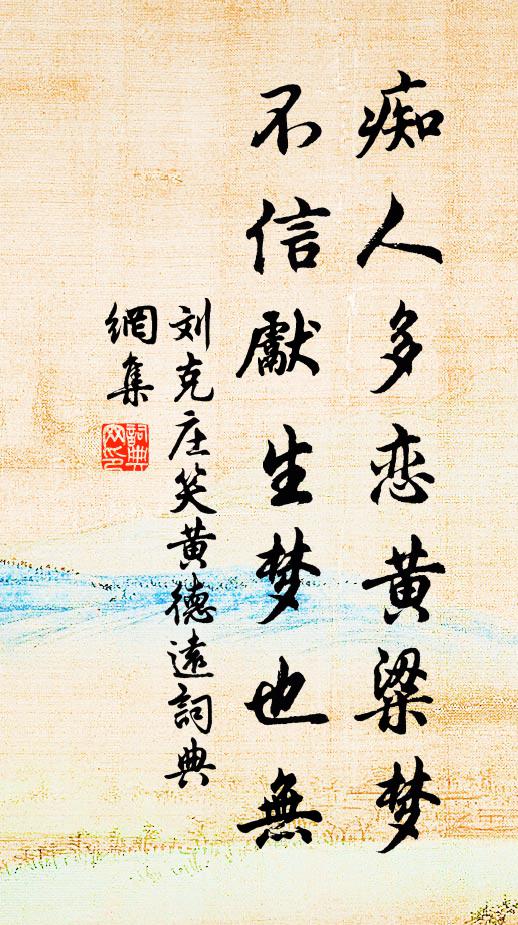 痴人多恋黄粱梦
不信獻生梦也無
刘克庄笑黄德遠詞典
網集
詞典